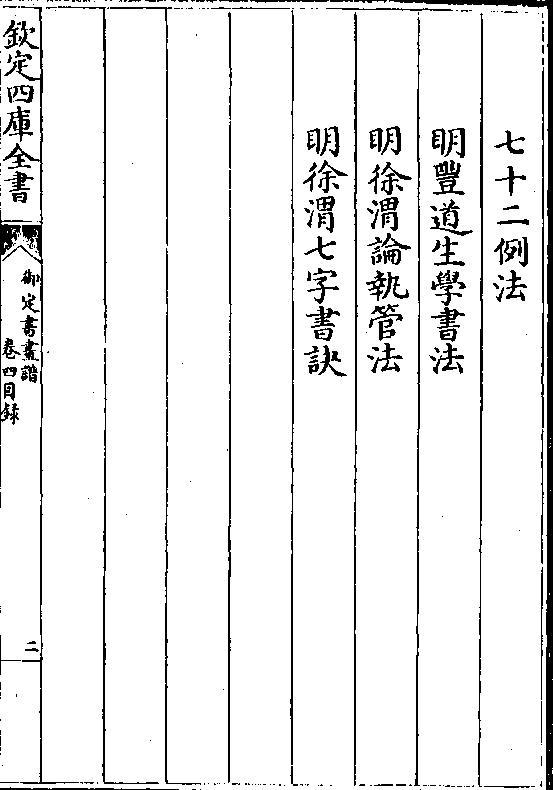 七十二例法
明豐道生學書法
明徐渭論執管法
明徐渭七字書訣
欽定四庫全書
御定書畫譜
卷四目録
二